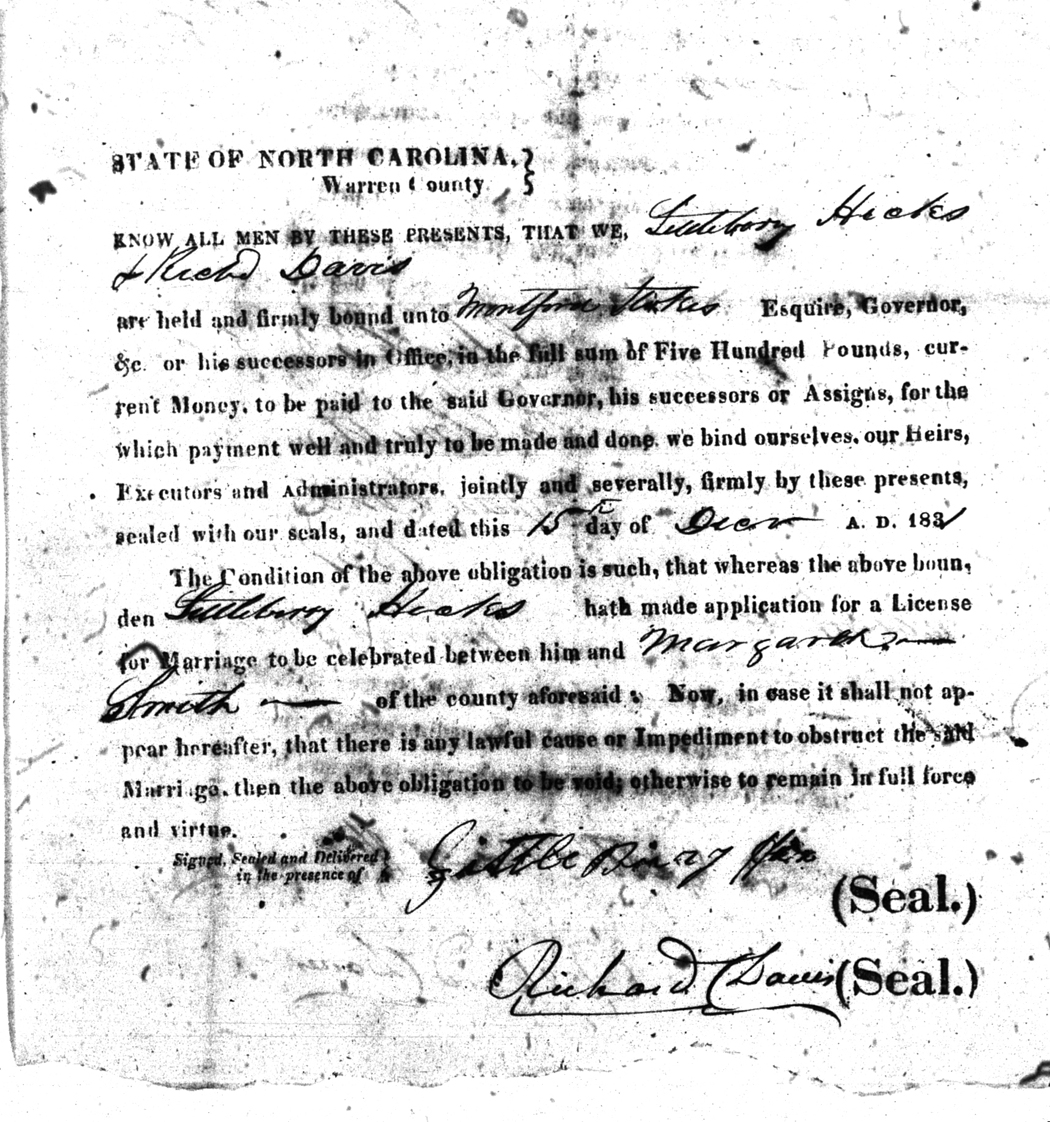 STATE OF NORTH CAROLINA,
Warren County.
KNOW ALL MEN BY THESE PRESENTS, THAT WE, Littlebery Hicks
& Richd Davis
are held and firmly bound unto Montford Stokes Esquire, Governor,
&c. or his successors in Office, in the full sum of Five Hundred Pounds, cur-
rent Money, to be paid to the said Governor, his successors or Assigns, for the
which payment well and truly to be made and done, we bind ourselves, our Heirs,
Executors and Administrators, jointly and severally, firmly by these presents,
sealed with our seals, and dated this 15th day of Decr A. D. 1831
The Condition of the above obligation is such, that whereas the above boun,
den Littlebery Hicks hath made application for a License
for Marriage to be celebrated between him and Margaret
Smith of the county aforesaid: Now, in case it shall not ap-
pear hereafter, that there is any lawful cause or Impediment to obstruct the said
Marriage, then the above obligation to be void; otherwise to remain in full force
and virtue.
Signed, Sealed and Delivered
in the presence of
Little Bury Hix
(Seal.)
Richard Davis (Seal.)